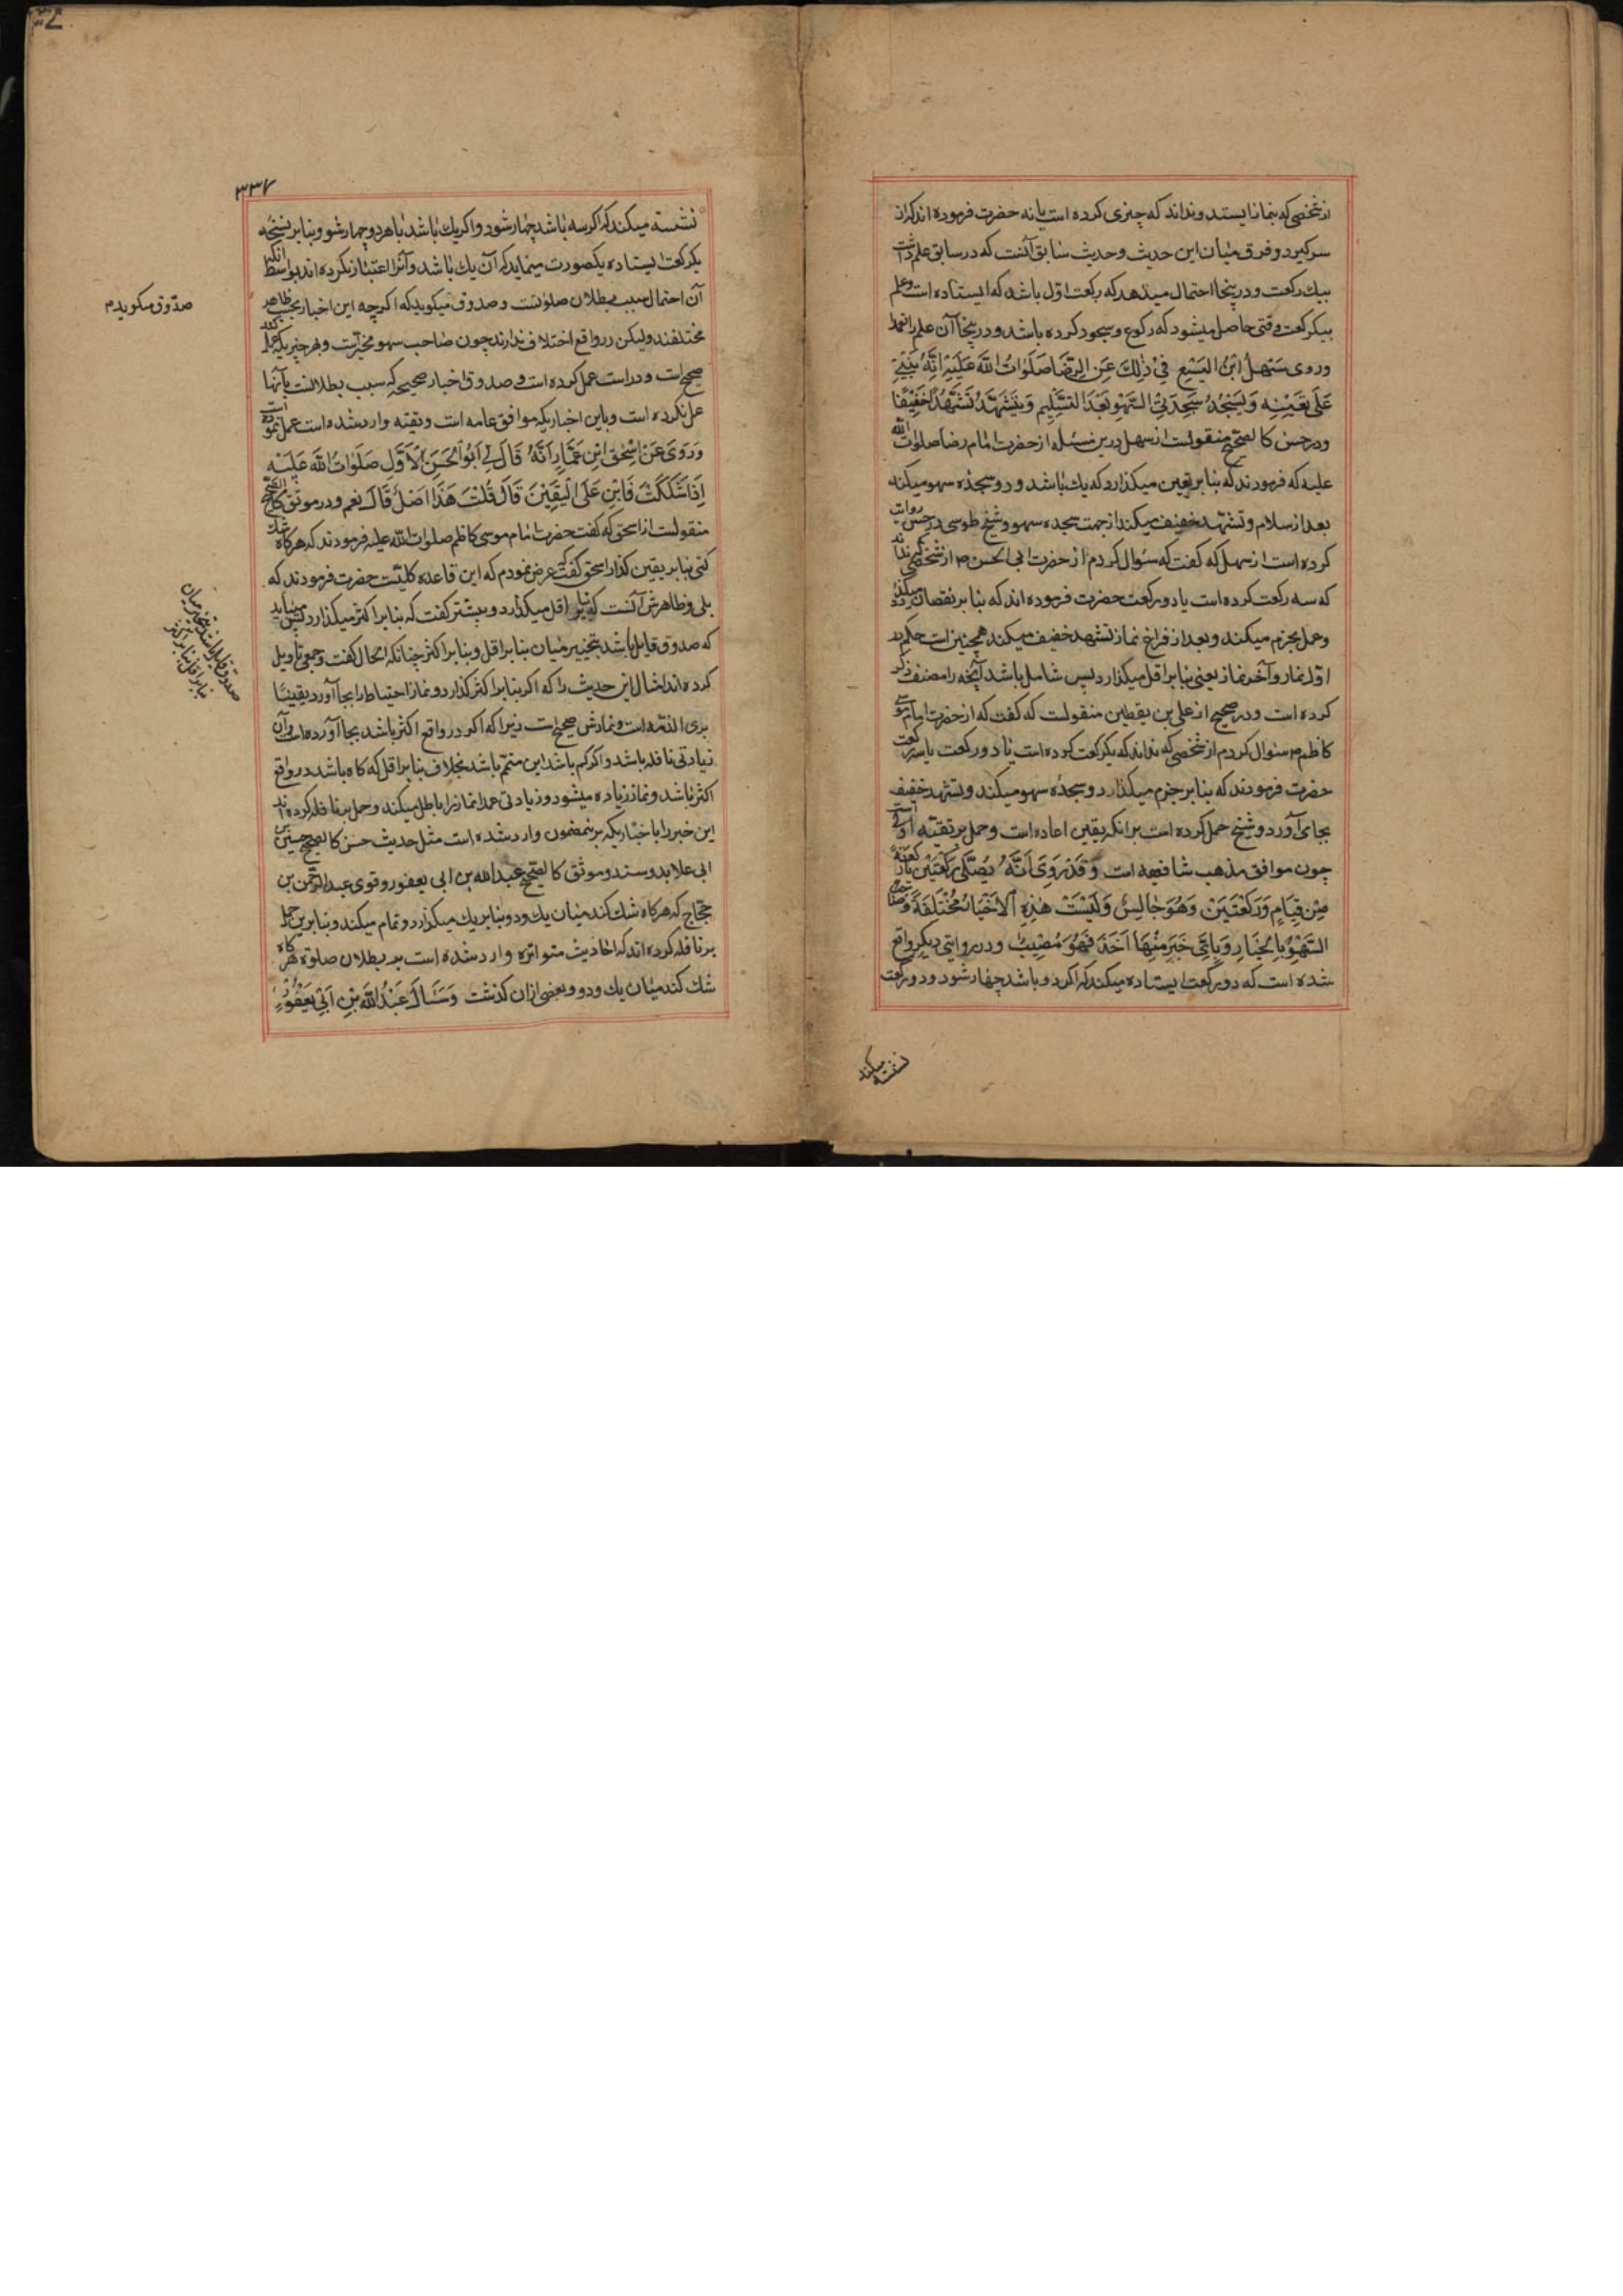 از شخصی که بنماز ایستد و نداند که چیزی کرده است یا نه حضرت فرموده اند که از
سر کیرد و فرق میان این حدیث و حدیث سابق آنست که در سابق علم داشت
بیك رکعت و در ینجا احتمال میدهد که رکعت اوّل باشد که ایستاده است و علم
بیکرکعت وقتی حاصل میشود که رکوع و سجود کرده باشد و در ینجا آن علم را ندارد
وروی سَهْلُ ابْنُ الیَسَعِ فِیْ ذٰلِكَ عَنِ الرِّضَا صَلَوَاتُ اللهِ عَلَیْهِ اِنَّهُ یَبْنِیْ
عَلَی یَقِیْنِهِ وَیَسْجُدُ سَجْدَتَیِ السَّهْوِ بَعْدَ التَّسْلِیْمِ وَیَتَشَهَّدُ تَشَهُّدًا خَفِیْفًا
ودر حسن کالصّحیح منقولست از سهل درین مسئله از حضرت امام رضا صلوات الله
علیه که فرمودند که بنا بر یقین میکذارد که یك باشد و دو سجده سهو میکند
بعد از سلام و تشهّد خفیف میکند از جهت سجده سهو و شیخ طوسی در حسن روایت
کرده است از سهل که کفت که سؤال کردم از حضرت ابی الحسن ص از شخصی که نداند
که سه رکعت کرده است یا دو رکعت حضرت فرموده اند که بنا بر نقصان میکذارد
وعمل بجزم میکند و بعد از فراغ نماز تشهد خفیف میکند همچنین است حکم در
اوّل نماز و آخر نماز یعنی بنا بر اقل میکذارد پس شامل باشد آنچه را مصنف ذکر
کرده است و در صحیح از علی بن یقطین منقولست که کفت که از حضرت امام موسی
کاظم م سئوال کردم از شخصی که نداند که یکرکعت کرده است یا دو رکعت یا سه رکعت
حضرت فرمودند که بنا بر جزم میکذارد و سجده سهو میکند و تشهد خفیف
بجای آورد و شیخ حمل کرده است بر انکه یقین اعاده است و حمل بر تقیّه اولی است
چون موافق مذهب شافعیه است وَقَدْ رَوَیَ اَنَّهُ یُصَلِّی رَکْعَتَیْنِ
مِنْ قِیَامٍ وَرَکْعَتَیْنِ وَهُوَ جَالِسٌ وَلَیْسَتْ هٰذِهِ الْاَخْبَارُ مُخْتَلِفَةً وَصَاحِبُ
السَّهْوِ بِالْخِیَارِ وَبِاَیِّ خَبَرٍ مِنْهَا اَخَذَ فَهُوَ مُصِیْبٌ ودر روایتی دیکر واقع
شده است که دو رکعت ایستاده میکند که اکر دو باشد چهار شود و دو رکعت
نشسته میکند
۳۳۷
نشسته میکند که اکر سه باشد چهار شود و اکر یك باشد با هر دو چهار شود و بنا بر نسخه
یکرکعت ایستاده یکصورت مینماید که آن یك باشد و آنرا اعتبار نکرده اند بواسطه انکه
آن احتمال سبب بطلان صلوتست و صدوق میکوید که اکرچه این اخبار بحسب ظاهر
مختلفند ولیکن در واقع اختلاف ندارند چون صاحب سهو مخیّر است و بهر خبر یکه عمل کند
صحیح است و دراست عمل کرده است و صدوق اخبار صحیحه که سبب بطلانست بآنها
عمل نکرده است و باین اخبار یکه موافق عامه است و تقیّه وارد شده است عمل نموده است
وَرَوَی عَنْ اِسْحٰقَ ابْنِ عَمَّارٍ اَنَّهُ قَالَ لِیْ اَبُوْ الْحَسَنِ الْاَوَّلِ صَلَوَاتُ اللهِ عَلَیْهِ
اِذَا شَکَکْتَ فَابْنِ عَلَی الْیَقِیْنِ قَالَ قُلْتُ هَذَا اَصْلٌ قَالَ نعم ودر موثق کالصّحیح
منقولست از اسحق که کفت حضرت امام موسی کاظم صلوات الله علیه فرمودند که هرکاه شك
کنی بنا بر یقین کذار اسحق کفت که عرض نمودم که این قاعده کلیّست حضرت فرمودند که
بلی و ظاهرش آنست که بنا بر اقل میکذارد و پیشتر کفت که بنا بر اکثر میکذارد پس مینماید
که صدوق قایل باشد بتخییر میان بنا بر اقل و بنا بر اکثر چنانکه الحال کفت و جمعی تاویل
کرده اند امثال این حدیث را که اکر بنا بر اکثر کذارد و نماز احتیاط را بجا آورد یقینًا
بری الذمّه است و نمازش صحیح است زیرا که اکر در واقع اکثر باشد بجا آورده است و آن
زیادتی نافله باشد و اکر کم باشد این متمّم باشد بخلاف بنا بر اقل که کاه باشد در واقع
اکثر باشد و نماز زیاده میشود و زیادتی عمدا نماز را باطل میکند و حمل بر نافله کرده اند
این خبر را با خبار یکه برینمضمون وارد شده است مثل حدیث حسن کالصّحیح حسین بن
ابی علا بدو سند و موثّق کالصّحیح عبدالله بن ابی یعفور و قوی عبدالرّحمن بن
حجّاج که هرکاه شك کند میان یك و دو بنا بر یك میکذارد و تمام میکند و بنا برین حمل
بر نافله کرده اند که احادیث متواتره وارد شده است بر بطلان صلوة هرکاه
شك کند میان یك و دو و بعضی ازان کذشت وَسَئَالَ عَبْدُ اللهِ بْنِ اَبِیْ یَعْفُوْرٍ
صدّوق میکوید م
صدوق قایل باشد بتخییر میان
بنا بر اقل و بنا بر اکثر